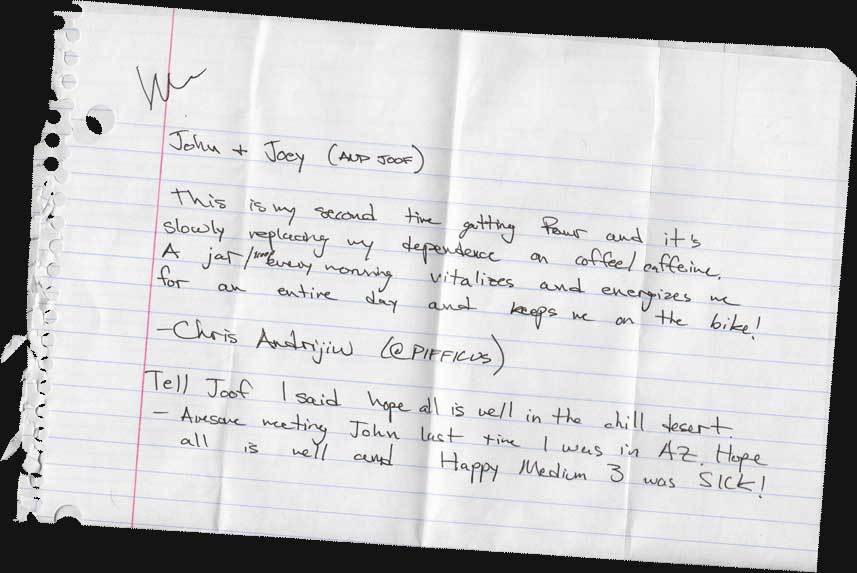 John + Joey (AND JOOF)
This is my second time getting Paur and it's
slowly replacing my dependence on coffee/caffeine.
A jar/ every morning vitalizes and energizes me
for an entire day and keeps me on the bike!
-Chris Andrijiw (@PIFFICUS)
Tell Joof I said hope all is well in the chill desert
- Awesome meeting John last time I was in AZ. Hope
all is well and Happy Medium 3 was SICK!